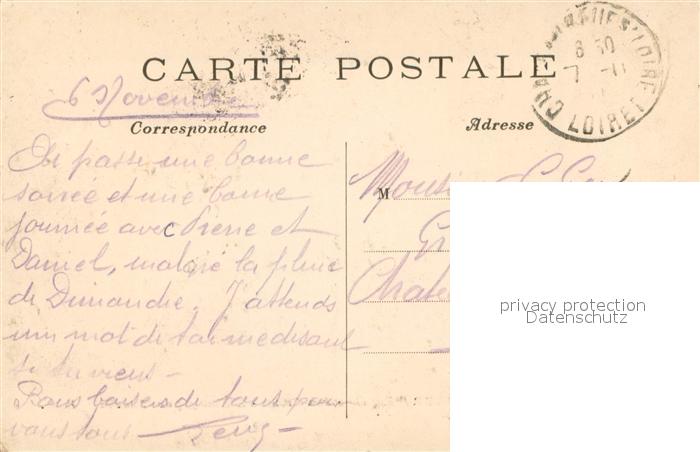 CARTE POSTALE
6 Novembre
Correspondance
Adresse
Ai passé une bonne
soirée et une bonne
journée avec Pierre et
Daniel, malgré la pluie
de Dimanche. J'attends
un mot de toi me disant
si tu viens -
Bons baisers de tous pour
vous tous
M
Monsi
Chate
8 30
7 - 11
LOIRET
privacy protection
Datenschutz